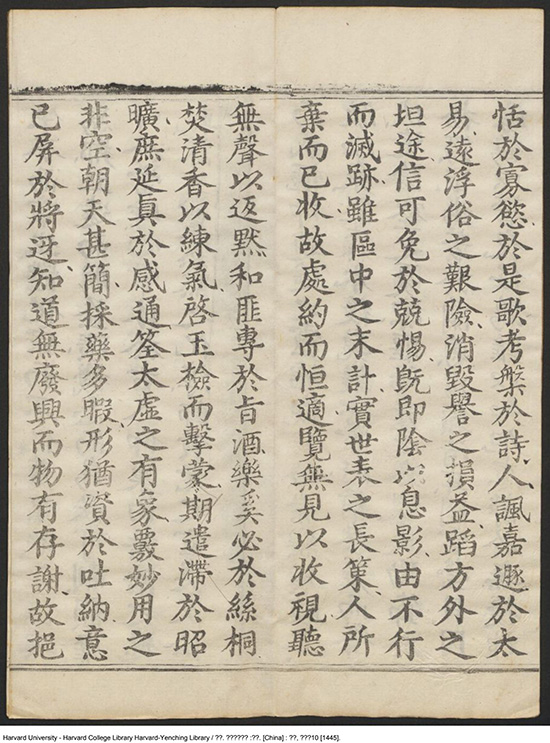 恬於寡慾於是歌考槃於詩人諷嘉遯於太
易遠浮俗之艱險消毀譽之損益蹈方外之
坦途信可免於兢惕旣即陰以息影由不行
而滅跡雖區中之末計實世表之長策人所
棄而已收故處約而恒適覽無見以收視聽
無聲以返黙和匪專於旨酒樂奚必於絲桐
焚清香以練氣啓玉檢而擊蒙期遣滯於昭
曠庶延真於感通筌太虛之有象覈妙用之
非空朝天甚簡採藥多暇形猶資於吐納意
已屏於將迓知道無廢興而物有存謝故挹
Harvard University - Harvard College Library Harvard-Yenching Library / ??. ?????? :??. [China] : ??, ???10 [1445].